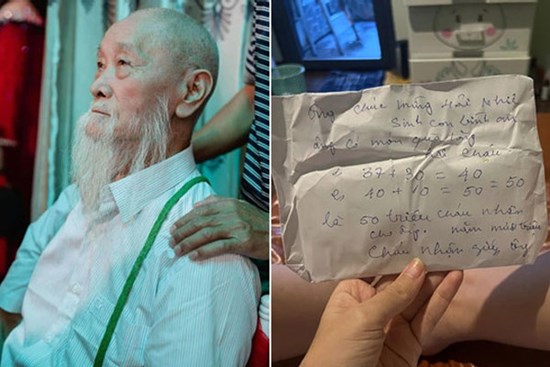 Ông chúc mừng Hải Nhi
Sinh con bình an
ông có món quà tặng
cháu
= 40
40 + 10 = 50 = 50
là 50 triệu cháu nhận
cho ông. năm mươi triệu
Cháu nhận giúp ông